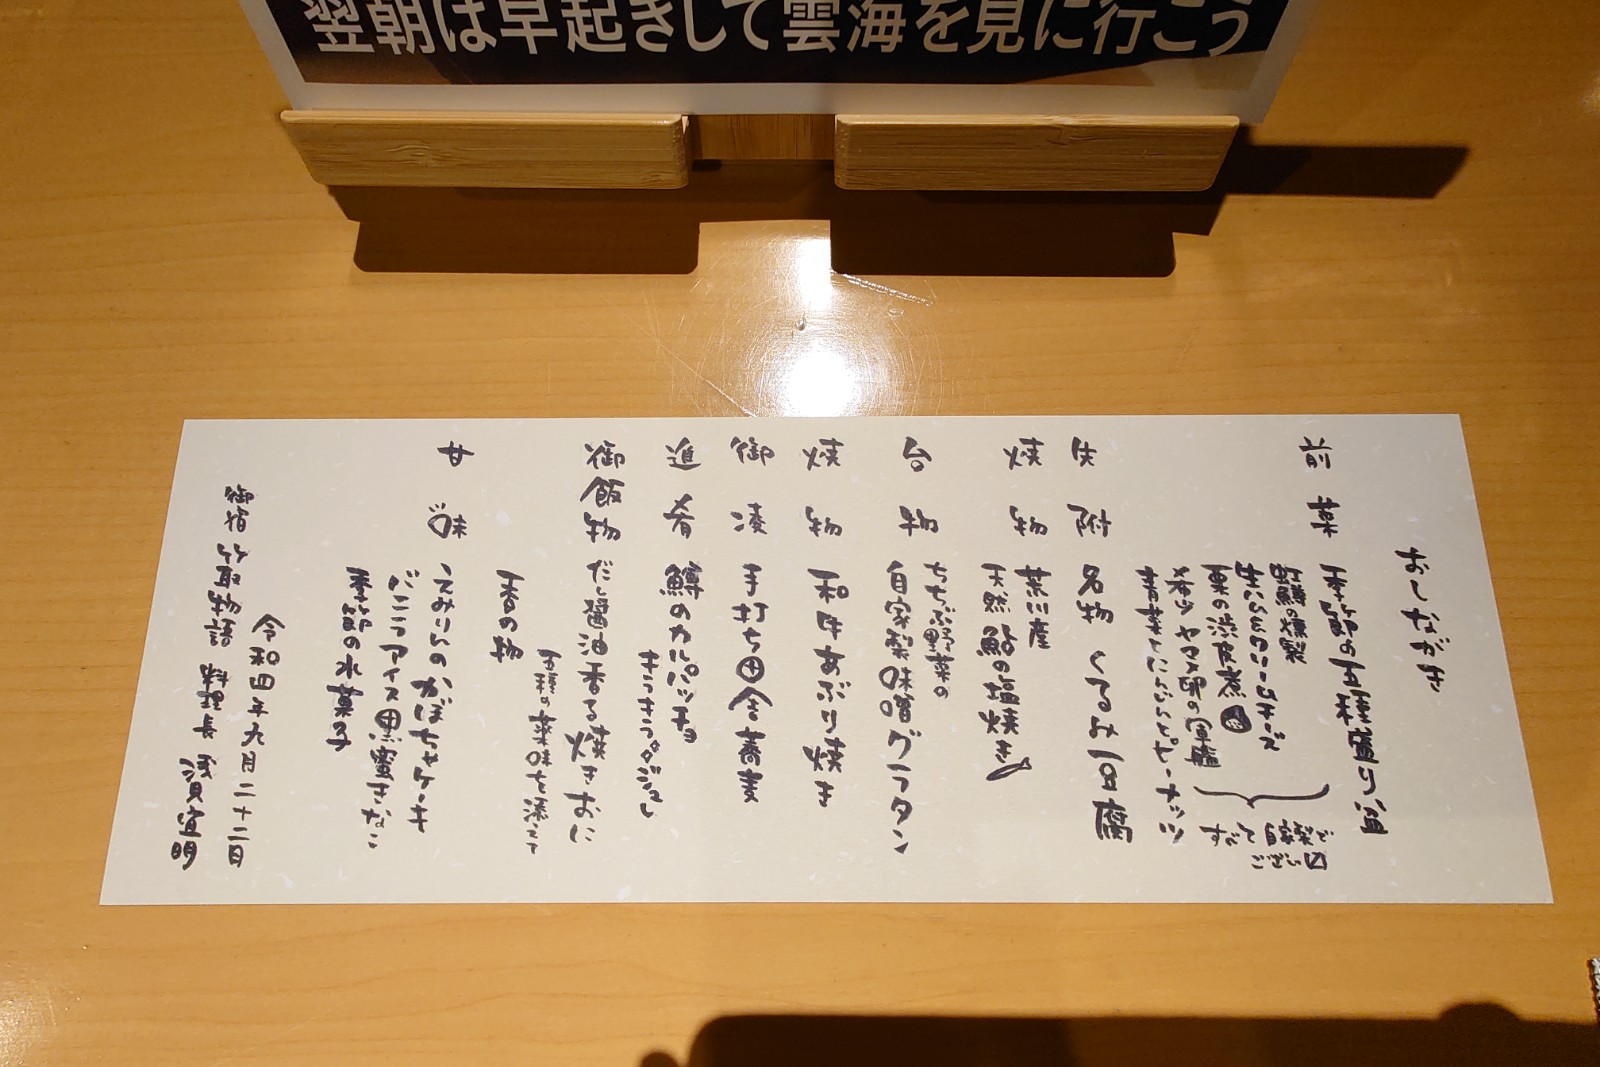 翌朝は早起きして雲海を見に行こう
おしながき
前菜
季節の五種盛り
鱒の燻製
クリームチーズ
栗の渋皮煮
ヤマメ卵の軍艦
青菜とピーナッツ
自家製でございます
先附
名物 くるみ豆腐
焼物
荒川産
天然鮎の塩焼き
台物
ちちぶ野菜の
自家製味噌グラタン
焼物
和牛あぶり焼き
御凌
手打ち田舎蕎麦
進肴
鱒のカルパッチョ
御飯物
だし醤油香る焼きおに
各種の薬味を添えて
香の物
甘味
のかぼちゃケーキ
アイス黒蜜きなこ
季節の水菓子
令和四年九月二十二日
御宿 竹取物語 料理長 浅見宣明